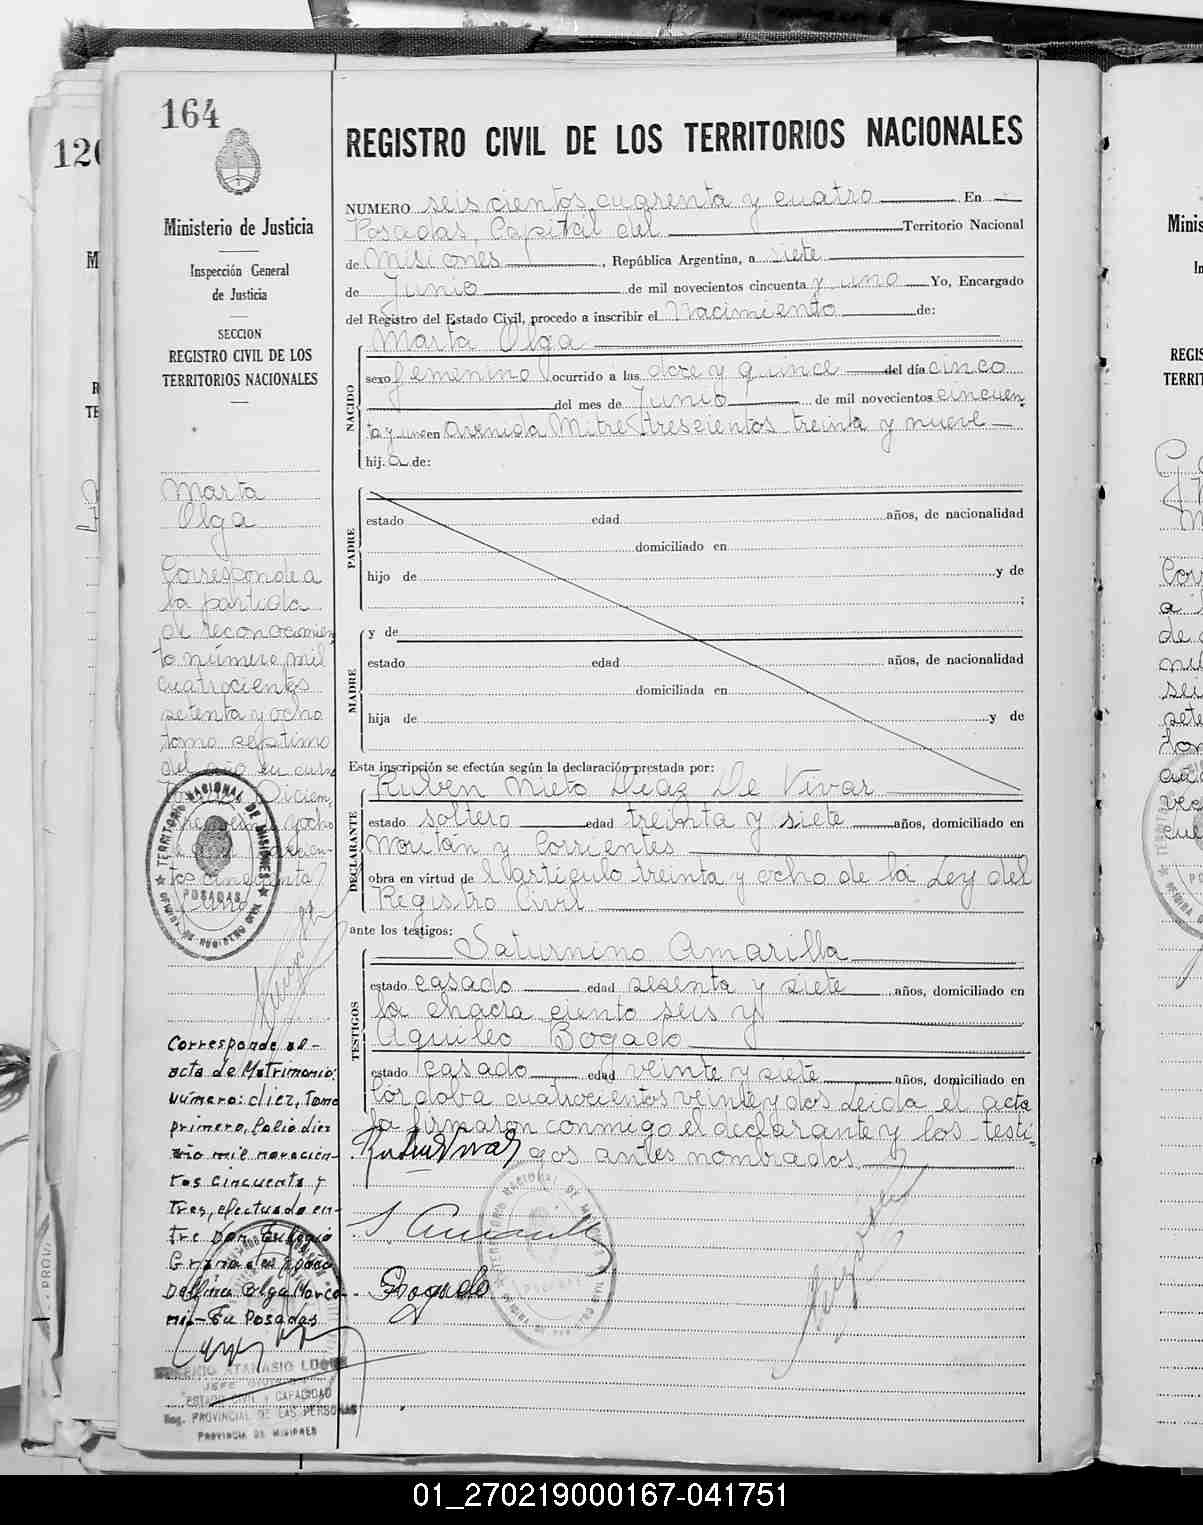 164
REGISTRO CIVIL DE LOS TERRITORIOS NACIONALES
Ministerio de Justicia
Inspección General
de Justicia
SECCION
REGISTRO CIVIL DE LOS
TERRITORIOS NACIONALES
NUMERO seiscientos cuarenta y cuatro En
Posadas, Capital del Territorio Nacional
de Misiones, República Argentina, a siete
de Junio de mil novecientos cincuenta y uno Yo, Encargado
del Registro del Estado Civil, procedo a inscribir el Nacimiento de:
NACIDO
Marta Olga
sexo femenino ocurrido a las doce y quince del día cinco
del mes de Junio de mil novecientos cincuen
ta y uno en Avenida Mitre trescientos treinta y nueve
hij a de:
PADRE
estado edad años, de nacionalidad
domiciliado en
hijo de y de
;
MADRE
y de
estado edad años, de nacionalidad
domiciliada en
hija de y de
Esta inscripción se efectúa según la declaración prestada por:
DECLARANTE
Ruben Nieto Diaz De Vivar
estado soltero edad treinta y siete años, domiciliado en
Roulán y Corrientes
obra en virtud de l artículo treinta y ocho de la Ley del
Registro Civil
ante los testigos:
TESTIGOS
Saturnino Amarilla
estado casado edad sesenta y siete años, domiciliado en
la chacra ciento seis y
Aquileo Bogado
estado casado edad veinte y siete años, domiciliado en
Córdoba cuatrocientos veinte y dos Leida el acta
la firmaron conmigo el declarante y los testi
gos antes nombrados
S Amarilla
Bogado
Marta
Olga
Corresponde a
la partida
de reconocimien
to número mil
cuatrocientos
setenta y ocho
tomo septimo
del año en curso
Diciem
TERRITORIO NACIONAL DE MISIONES
POSADAS
OFICINA DE REGISTRO CIVIL
Corresponde al-
acta de Matrimonio.
Número: diez, Tomo
primero, folio diez
año mil novecien-
tos cincuenta y
tres, efectuado en-
tre Don Eulogio
Delfina Olga Marco-
ni- En Posadas
ATANASIO LUQUE
JEFE
ESTADO CIVIL Y CAPACIDAD
Reg. PROVINCIAL DE LAS PERSONAS
PROVINCIA DE MISIONES
01_270219000167-041751